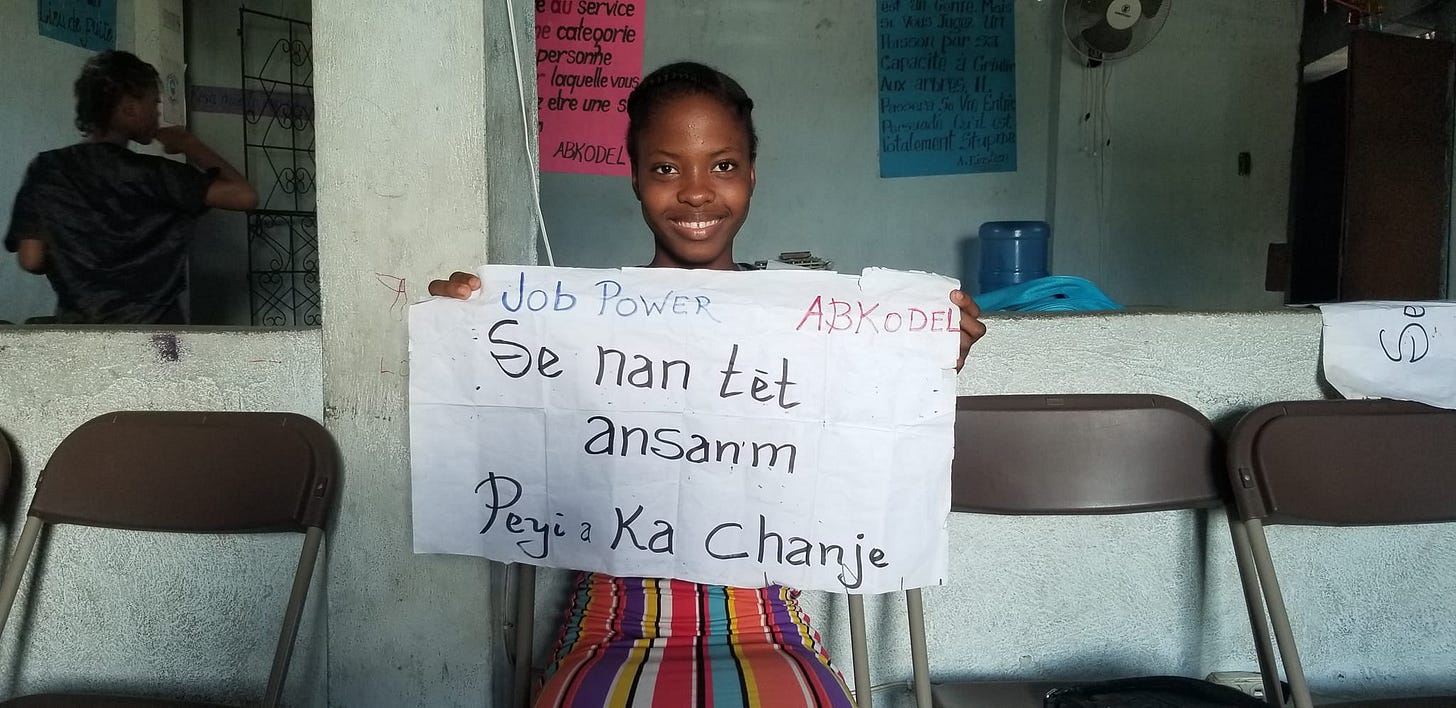 Lieu de fuite
e au service
ne categorie
personne
r laquelle vous
z etre une s
ABKODEL
est un Genre. Mais
si vous Jugez un
Poisson par sa
Capacité à Grimper
Aux arbres, IL
Passera Sa Vie Entière
Persuadé Qu'il est
totalement Stupide
A. Einstein
Job POWER ABKODEL
Se nan tèt
ansan'm
Peyi a Ka Chanje
Se